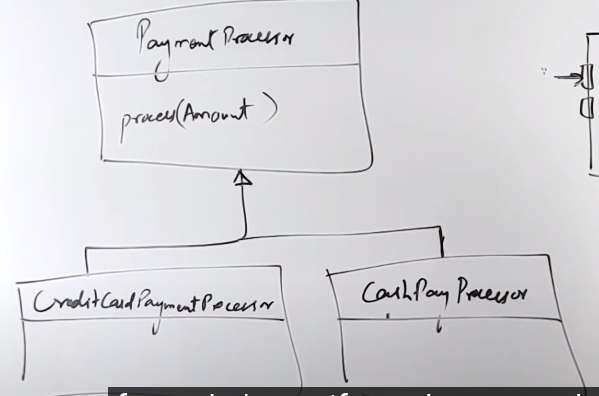 PaymentProcessor
process(Amount)
CreditCardPaymentProcessor
CashPayProcessor